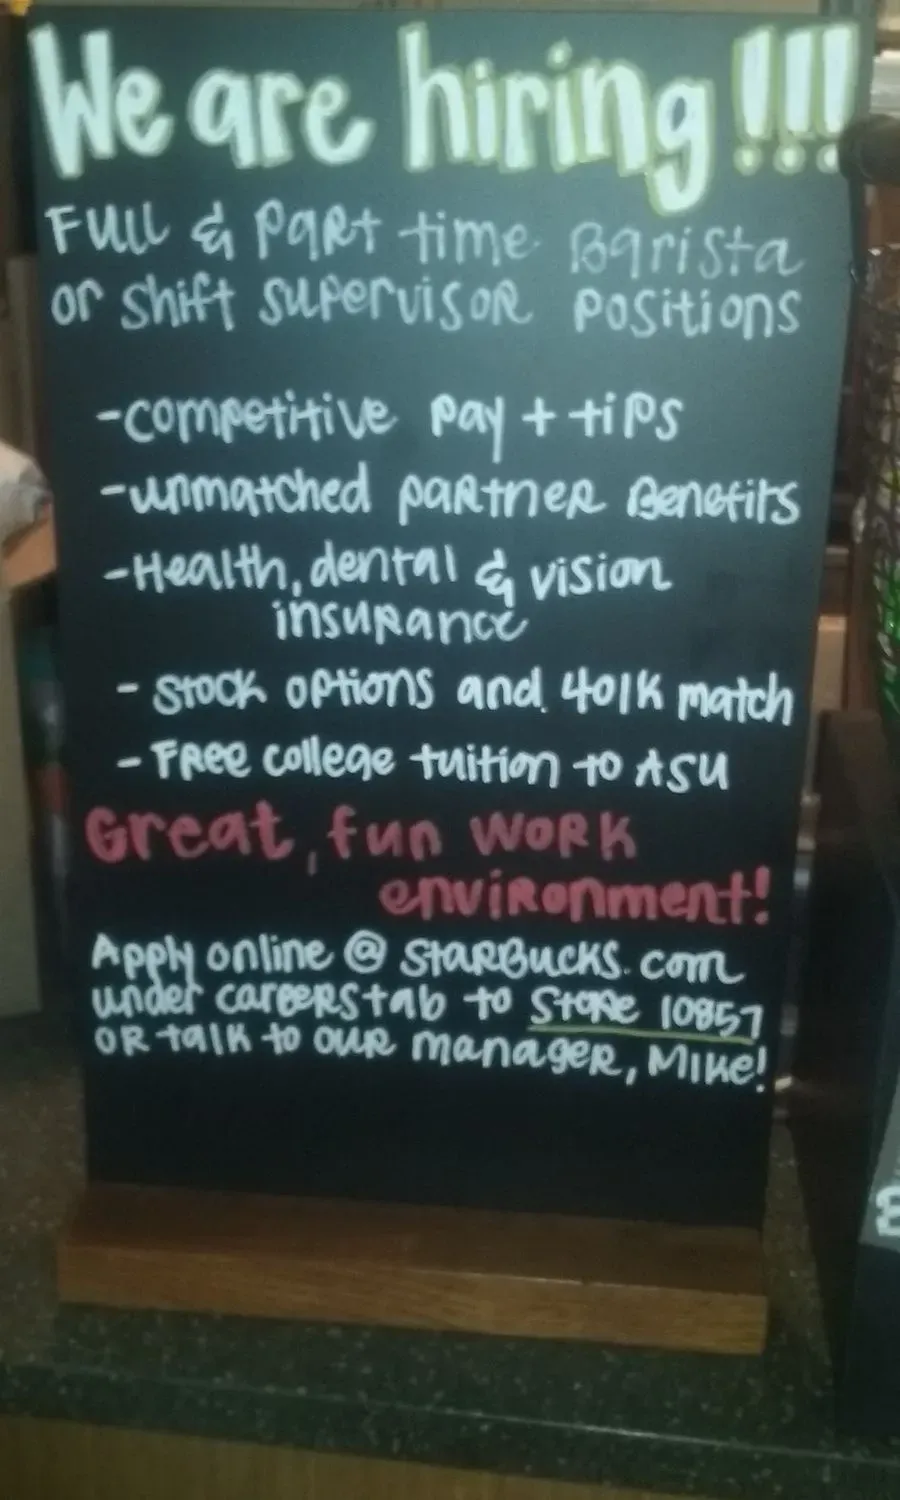 We are hiring!!!
Full & Part time Barista
or shift supervisor positions
-competitive pay + tips
-unmatched partner Benefits
-Health, dental & vision
insurance
- Stock options and 401k match
- Free college tuition to ASU
Great, fun work
environment!
Apply online @ STARBUCKS.com
under careers tab to Store 10857
OR talk to our manager, Mike!